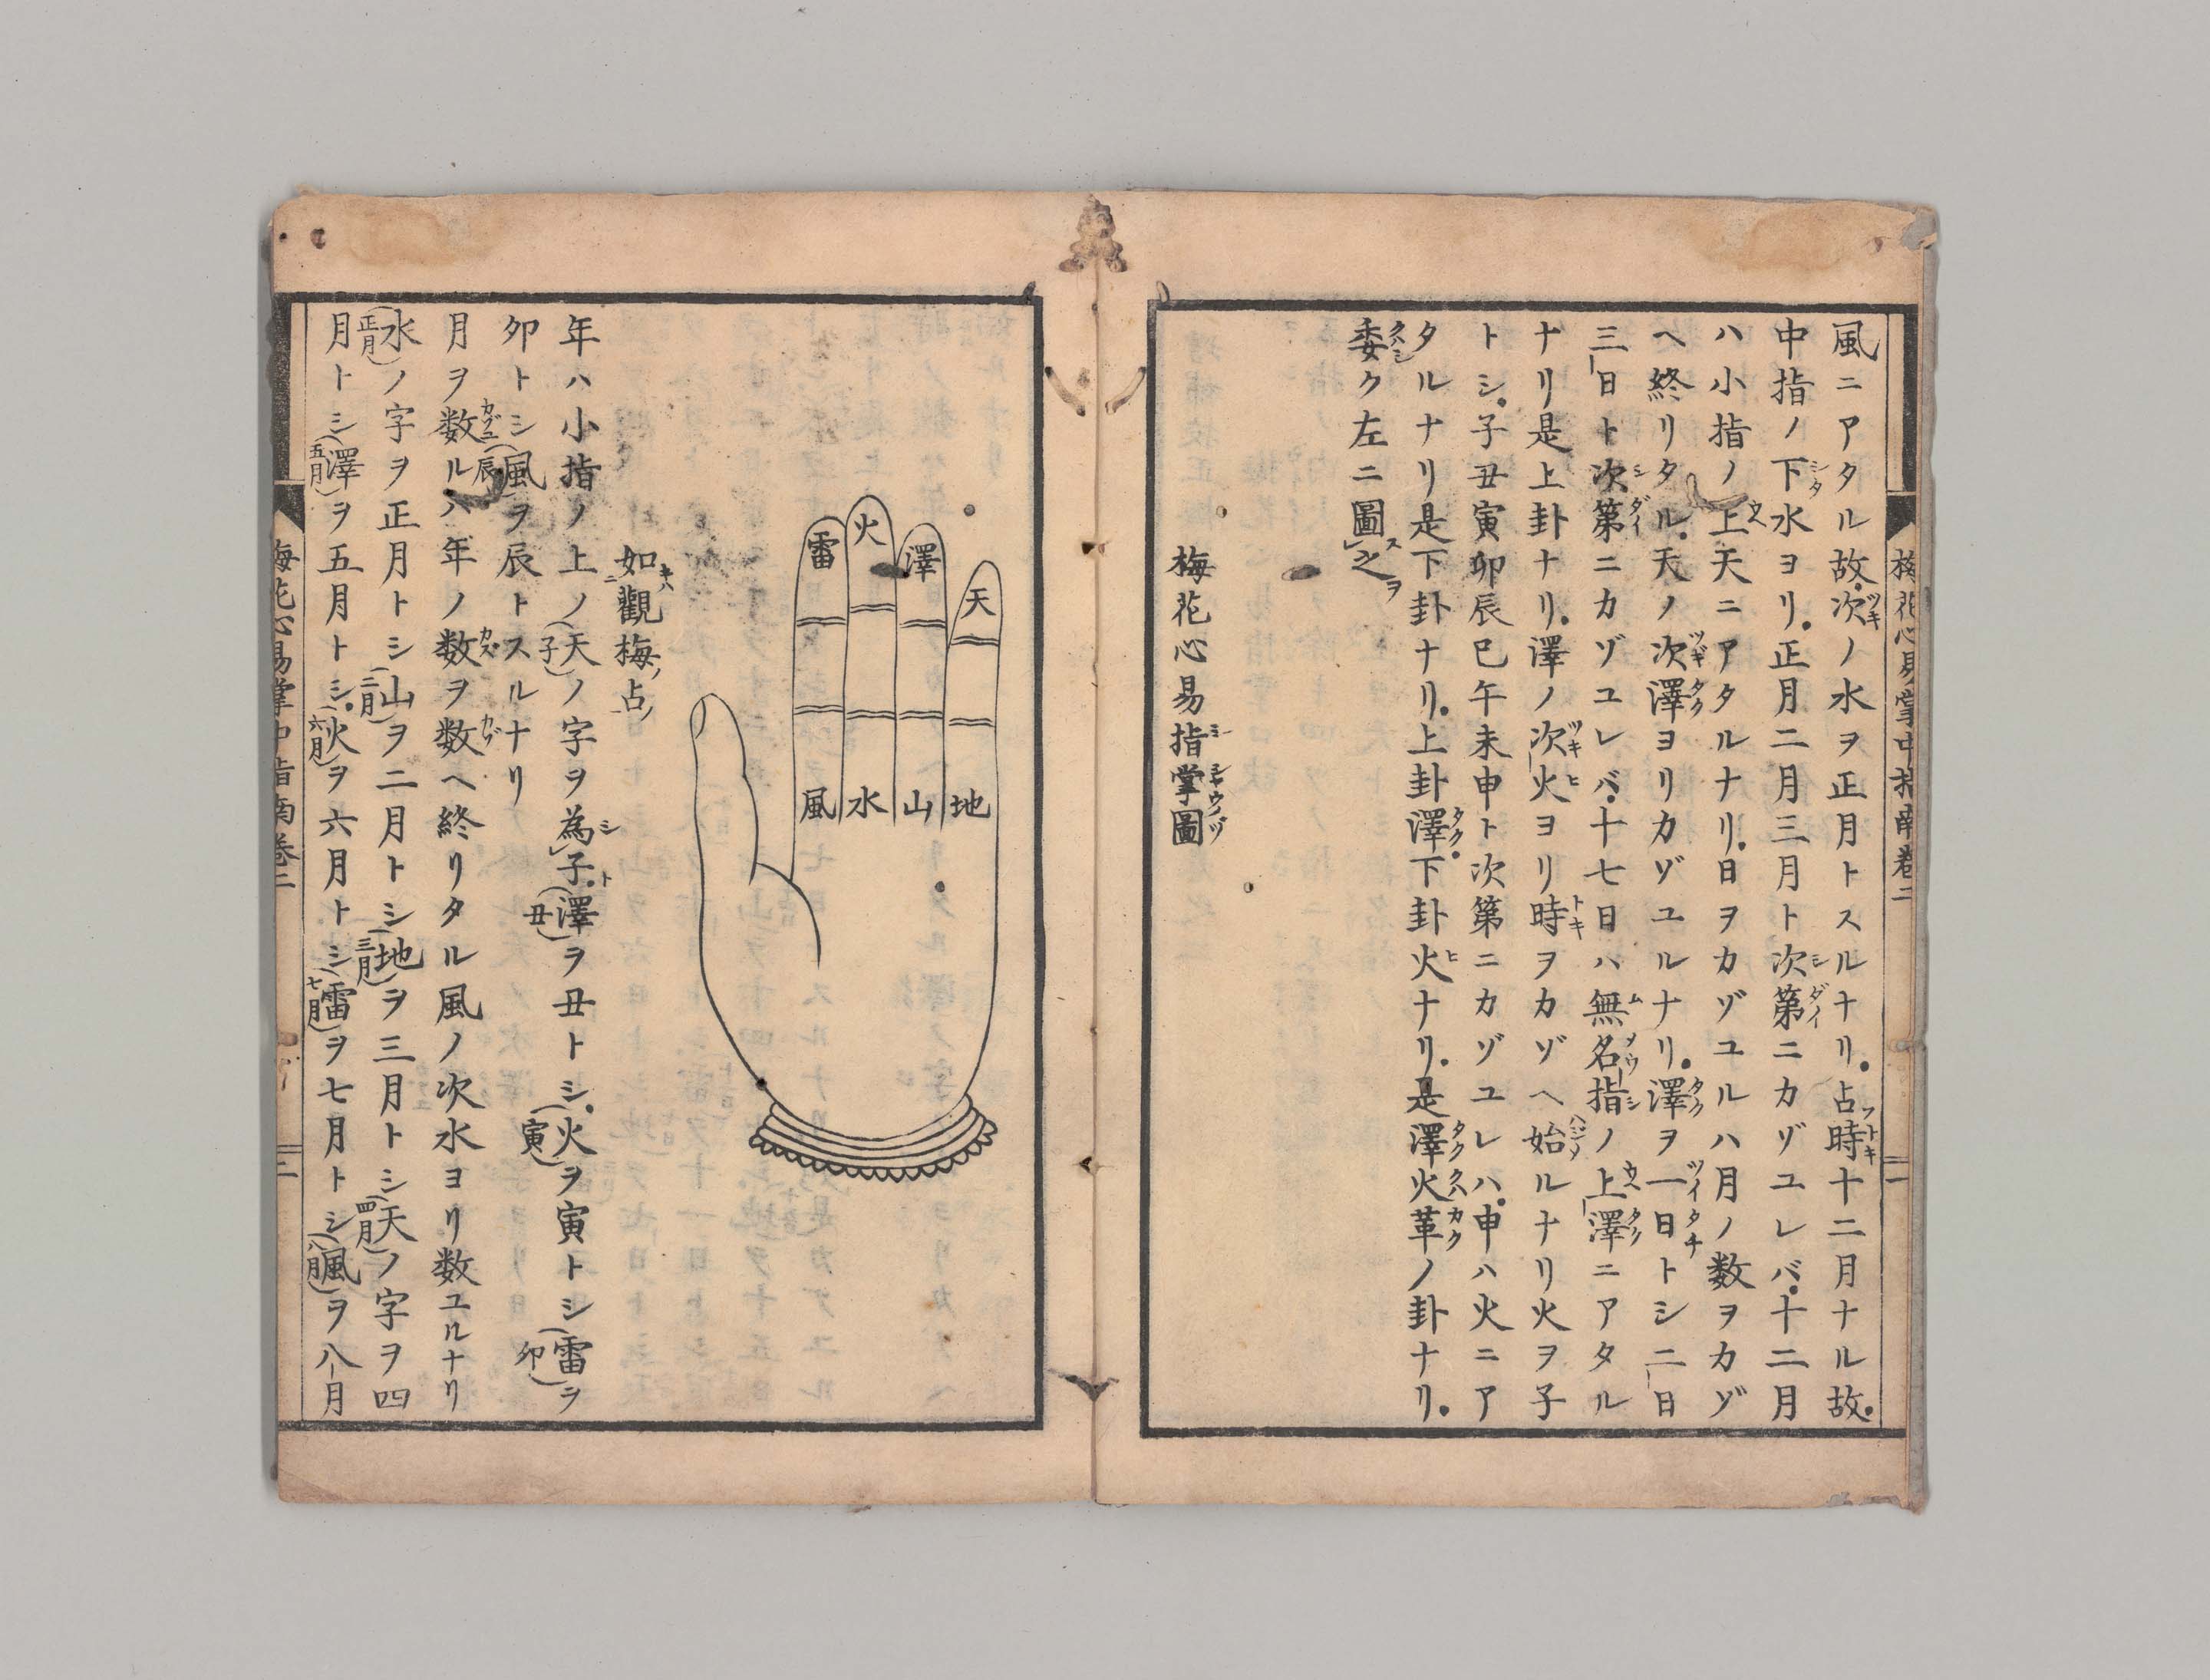 梅花心易掌中指南卷二
一
風ニアタル故。次ノ水ヲ正月トスルナリ。占時十二月ナル故。
中指ノ下水ヨリ。正月二月三月ト次第ニカゾユレバ。十二月
ハ小指ノ上天ニアタルナリ。日ヲカゾユルハ月ノ数ヲカゾ
ヘ終リタル。天ノ次澤ヨリカゾユルナリ。澤ヲ一日トシ二日
三日ト次第ニカゾユレバ。十七日ハ無名指ノ上澤ニアタル
ナリ是上卦ナリ。澤ノ次火ヨリ時ヲカゾヘ始ルナリ火ヲ子
トシ。子丑寅卯辰巳午未申ト次第ニカゾユレハ。申ハ火ニア
タルナリ是下卦ナリ。上卦澤下卦火ナリ。是澤火革ノ卦ナリ。
委ク左ニ圖之
梅花心易指掌圖
天
澤
火
雷
地
山
水
風
如觀梅占
年ハ小指ノ上ノ天(子)ノ字ヲ為子。澤(丑)ヲ丑トシ。火(寅)ヲ寅トシ雷(卯)ヲ
卯トシ風(辰)ヲ辰トスルナリ
月ヲ数ルハ年ノ数ヲ数ヘ終リタル風ノ次水ヨリ数ユルナリ
水(正月)ノ字ヲ正月トシ山(二月)ヲ二月トシ地(三月)ヲ三月トシ天(四月)ノ字ヲ四
月トシ澤(五月)ヲ五月トシ。火(六月)ヲ六月トシ雷(七月)ヲ七月トシ風(八月)ヲ八月
梅花心易掌中指南卷二
二